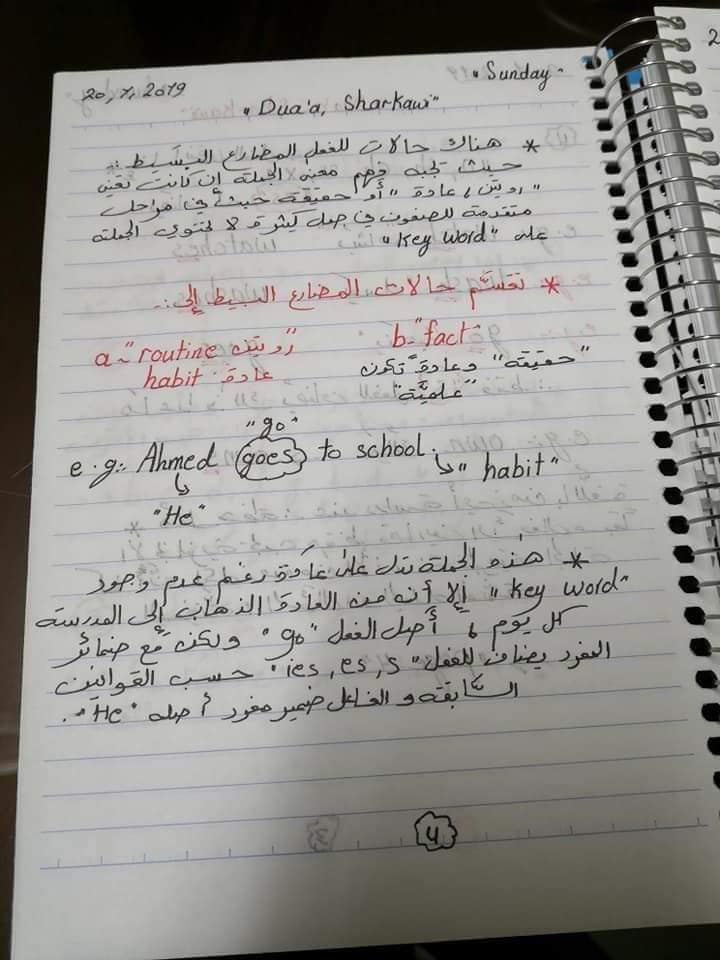 20, 7, 2019
"Sunday"
"Dua'a, Sharkawi"
* هناك حالات للفعل المضارع البسيط :.
حيث يجب فهم معنى الجملة إن كانت تعني
"روتين، عادة" أو حقيقة حيث في مراحل
متقدمة للصفوف في جمل كثيرة لا تحتوي الجملة
على "Key word"
* تقسّم حالات المضارع البسيط إلى :.
a - "routine روتين
habit: عادة
b - "fact"
"حقيقة" وعادةً تكون
"علميّة"
"go"
e.g:. Ahmed goes to school.
↳ "habit"
↳
"He"
* هذه الجملة تدل على عادة رغم عدم وجود
"Key word" إلا أنه من العادة الذهاب إلى المدرسة
كل يوم، أصل الفعل "go" ولكن مع ضمائر
المفرد يضاف للفعل "ies, es, s" حسب القوانين
السابقة والفاعل ضمير مفرد أصله "He".
4